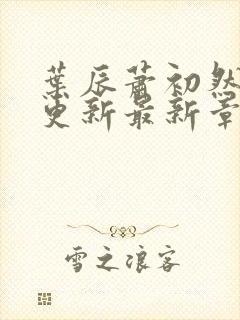 葉辰蕭初然
更新最新章
雪之浪客